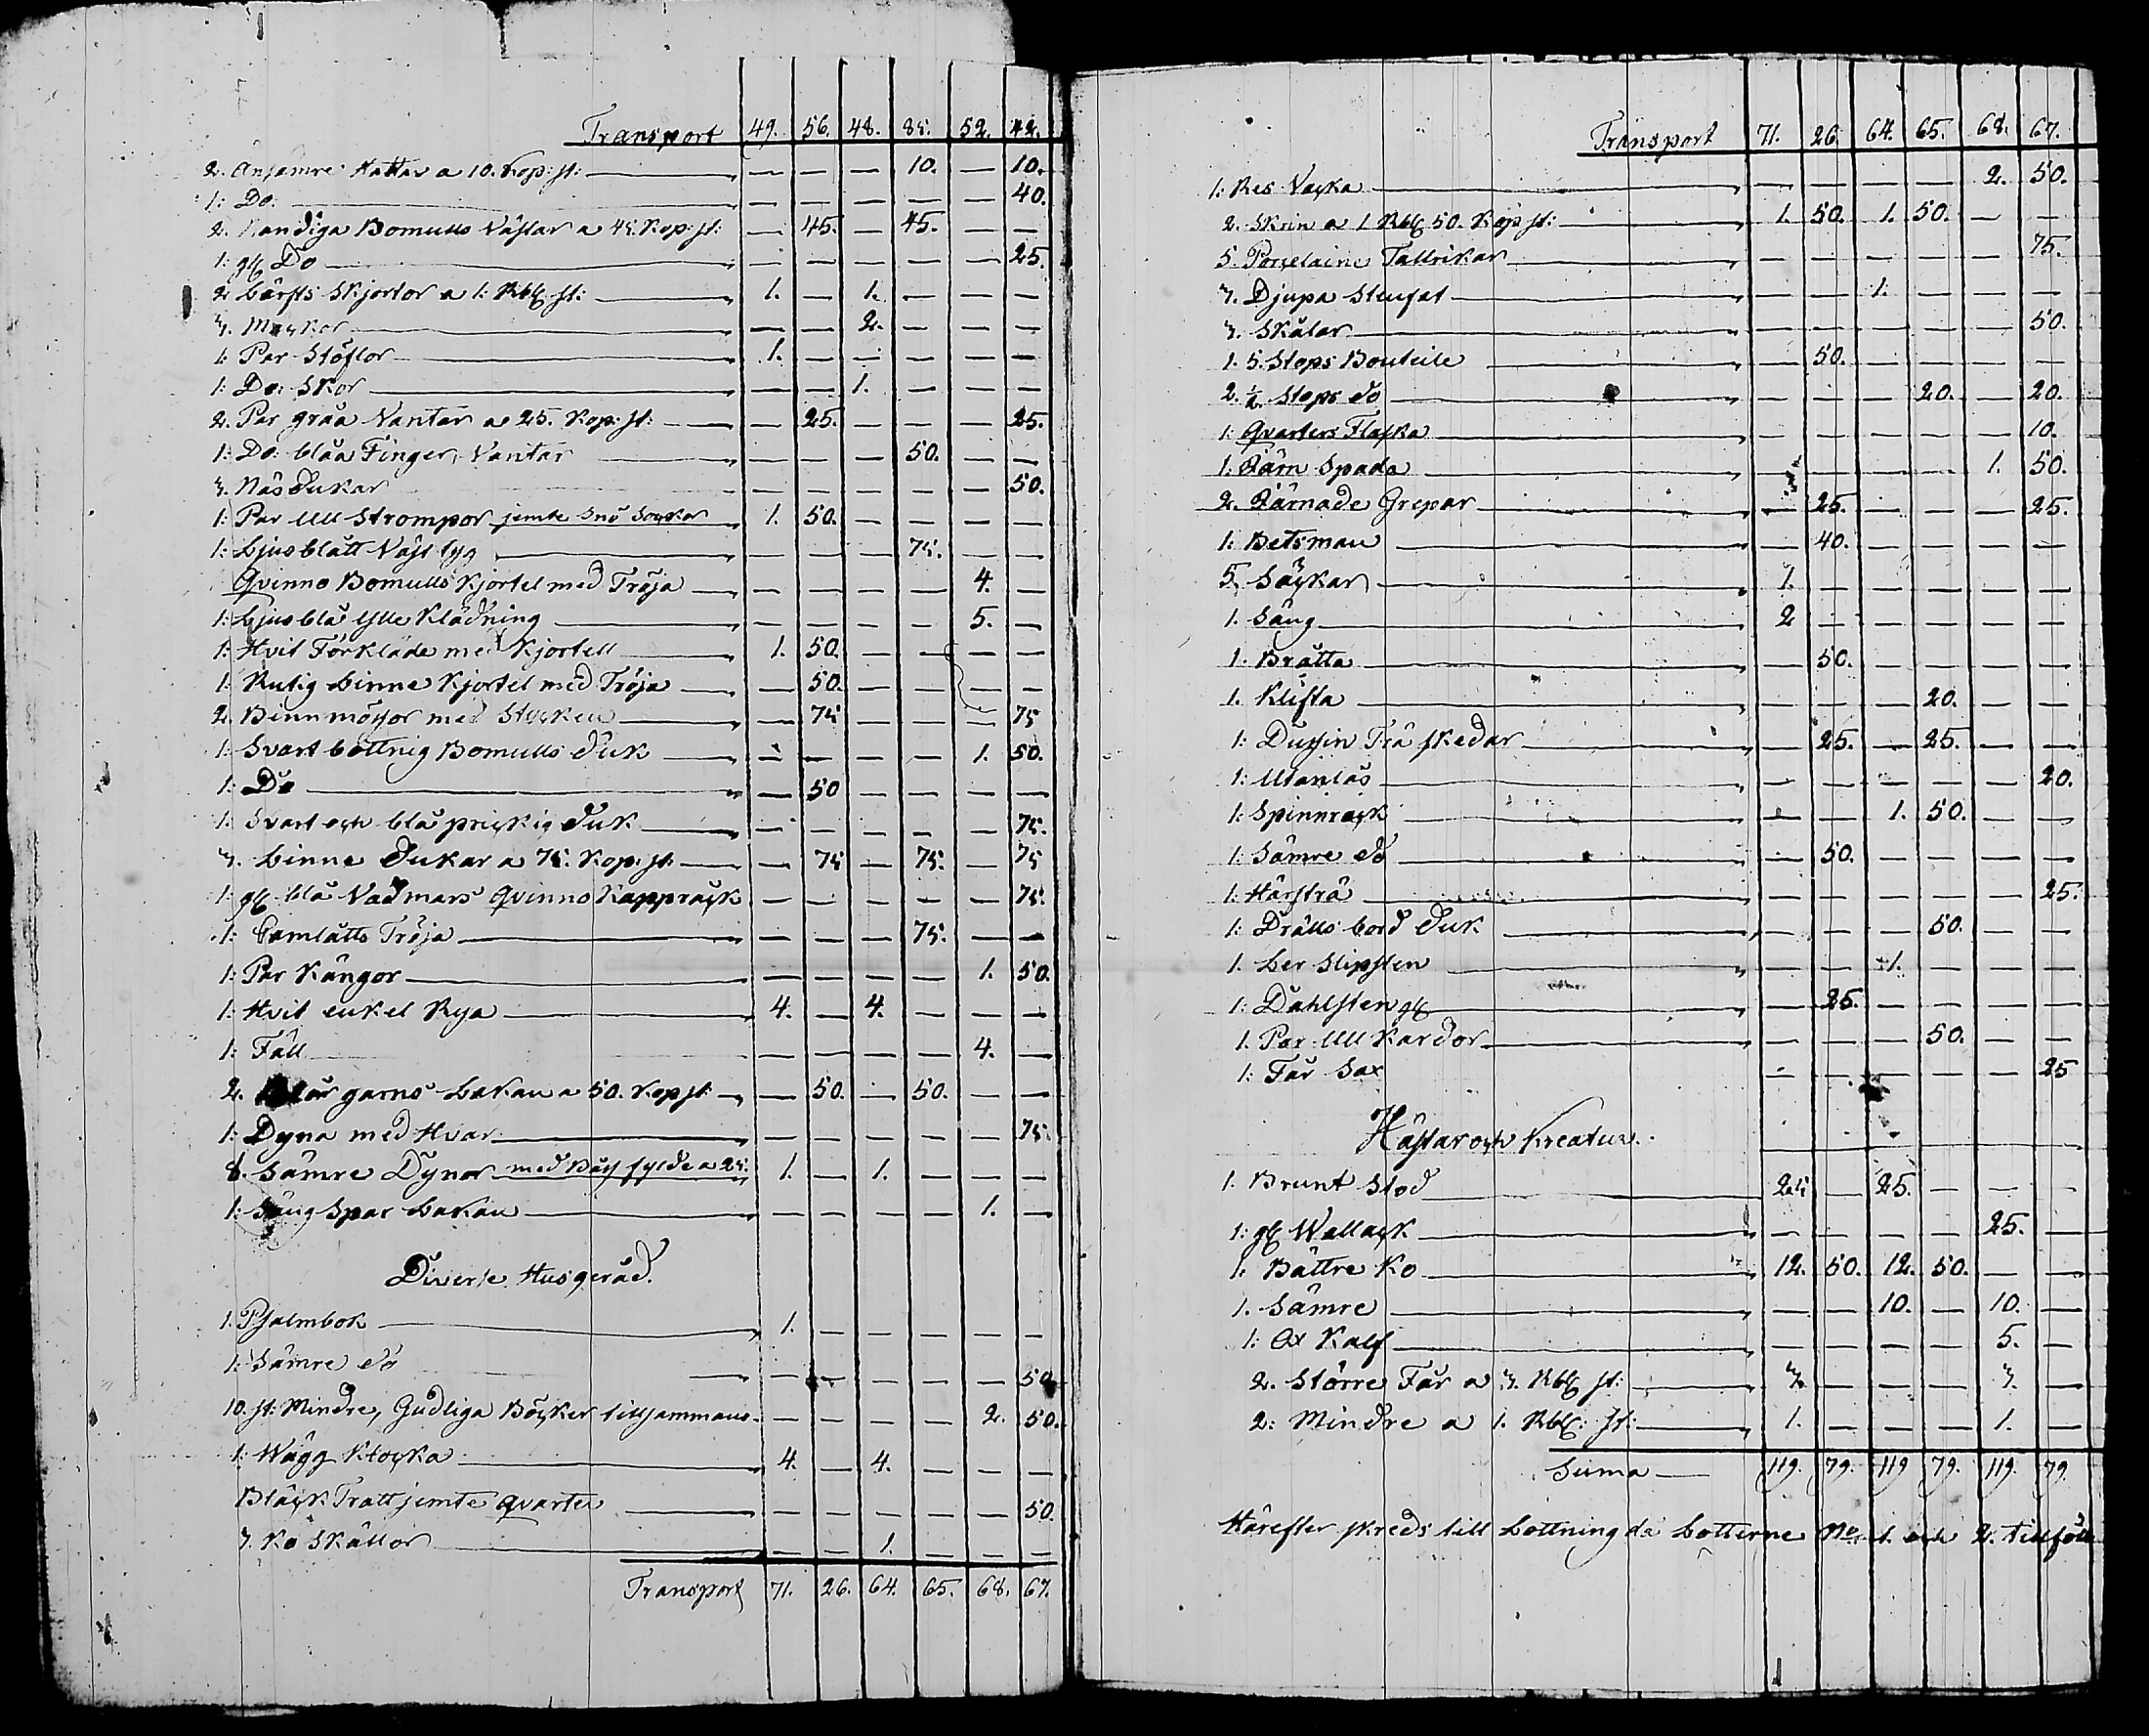 Transport 49. 56. 48. 85. 52. 42.
2. Ansämre Hattar a 10. Kop: st: — — — 10. — 10.
1: Do: — — — — — 40.
2. Randiga Bomulls Västar a 45. Kop: st: — 45. — 45. — —
1: gl Do — — — — — 25.
2 Lärfts Skjortor a 1: Rbl. st: 1. — 1. — — —
3. — — 2. — — —
1: Par Stöflor 1. — — — — —
1: Do: Skor — — 1. — — —
2. Par gråa Vantar a 25. Kop: st: — 25. — — — 25.
1: Do: blåa Finger Vantar — — — 50. — —
3. Näsdukar — — — — — 50.
1: Par Ull Strompor jemte Snö Sockor 1. 50. — — — —
1: Ljusblått Väst tyg — — — 75. — —
Qvinno Bomulls Kjortel med Tröja — — — — 4. —
1: Ljusblå Ylle Klädning — — — — 5. —
1: Hvit Förkläde med Kjortell 1. 50. — — — —
1: Rutig Linne Kjortel med Tröja — 50. — — — —
2. Binnmössor med Stycken — 75 — — — 75
1: Svart bottnig Bomulls duk — — — — 1. 50.
1: Do — 50 — — — —
1: Svart och blå prickig duk — — — — — 75.
3. Linne dukar a 75. Kop: st: — 75 — 75. — 75
1: gl blå Vadmars Qvinno Kapprock — — — — — 75.
1: Camlåtts Tröja — — — 75. — —
1: Par Kängor — — — — 1. 50.
1: Hvit enkel Rya 4. — 4. — — —
1: Fäll — — — — 4. —
2. Blår garns Lakan a 50. Kop st: — 50. — 50. — —
1: Dyna med Hvar — — — — — 75.
8. Sämre Dynor med fylde a 25. 1. — 1. — — —
1: Säng Spar Lakan — — — — 1. —
Diverse Husgeråd.
1. Psalmbok 1. — — — — —
1: Sämre do — — — — — 50
10. st: Mindre, Gudliga Böcker tillsammans — — — — 2. 50.
1: Wägg Klocka 4. — 4. — — —
Bläck Tratt jemte qvarter — — — — — 50.
3. Ko Skällor — — 1. — — —
Transport 71. 26. 64. 65. 68. 67.
Transport 71. 26. 64. 65. 68. 67.
1: Res Väska — — — — 2. 50.
2. Skrin a 1 Rbl 50. Kop st: 1. 50. 1. 50. — —
5. Porcelaine Tallrikar — — — — — 75.
3. Djupa Stenfat — — 1. — — —
3. Skålar — — — — — 50.
1. 5. Stops Bouteile — 50. — — — —
2. ½ Stops do — — — 20. — 20.
1: Qvarters Flaska — — — — — 10.
1. Järn Spada — — — — 1. 50.
2. Järnade Grepar — 25. — — — 25.
1: Betsman — 40. — — — —
5. Säckar 1. — — — — —
1. Säng 2 — — — — —
1. Bråtta — 50. — — — —
1. Klifta — — — 20. — —
1: Dussin Trä skedar — 25. — 25. — —
1: Utanlås — — — — — 20.
1: Spinnrock — — 1. 50. — —
1: Sämre do — 50. — — — —
1: — — — — — 25.
1: Drälls bord duk — — — 50. — —
1. Ler Slipsten — — 1. — — —
1: Dahlsten gl — 25. — — — —
1. Par Ull Kardor — — — 50. — —
1: Får Sax — — — — — 25
Hästar och Kreatur.
1. Brunt Stod 25 — 25. — — —
1: gl Wallack — — — — 25. —
1. Bättre Ko 12. 50. 12. 50. — —
1. Sämre — — 10. — 10. —
1: Ox Kalf — — — — 5. —
2. Större Får a 3. Rbl st: 3. — — — 3. —
2: Mindre a 1. Rbl: st: 1. — — — 1. —
Suma 119. 79. 119 79. 119. 79.
Härefter skreds till Lottning då Lotterne No 1. och 2. tillföll